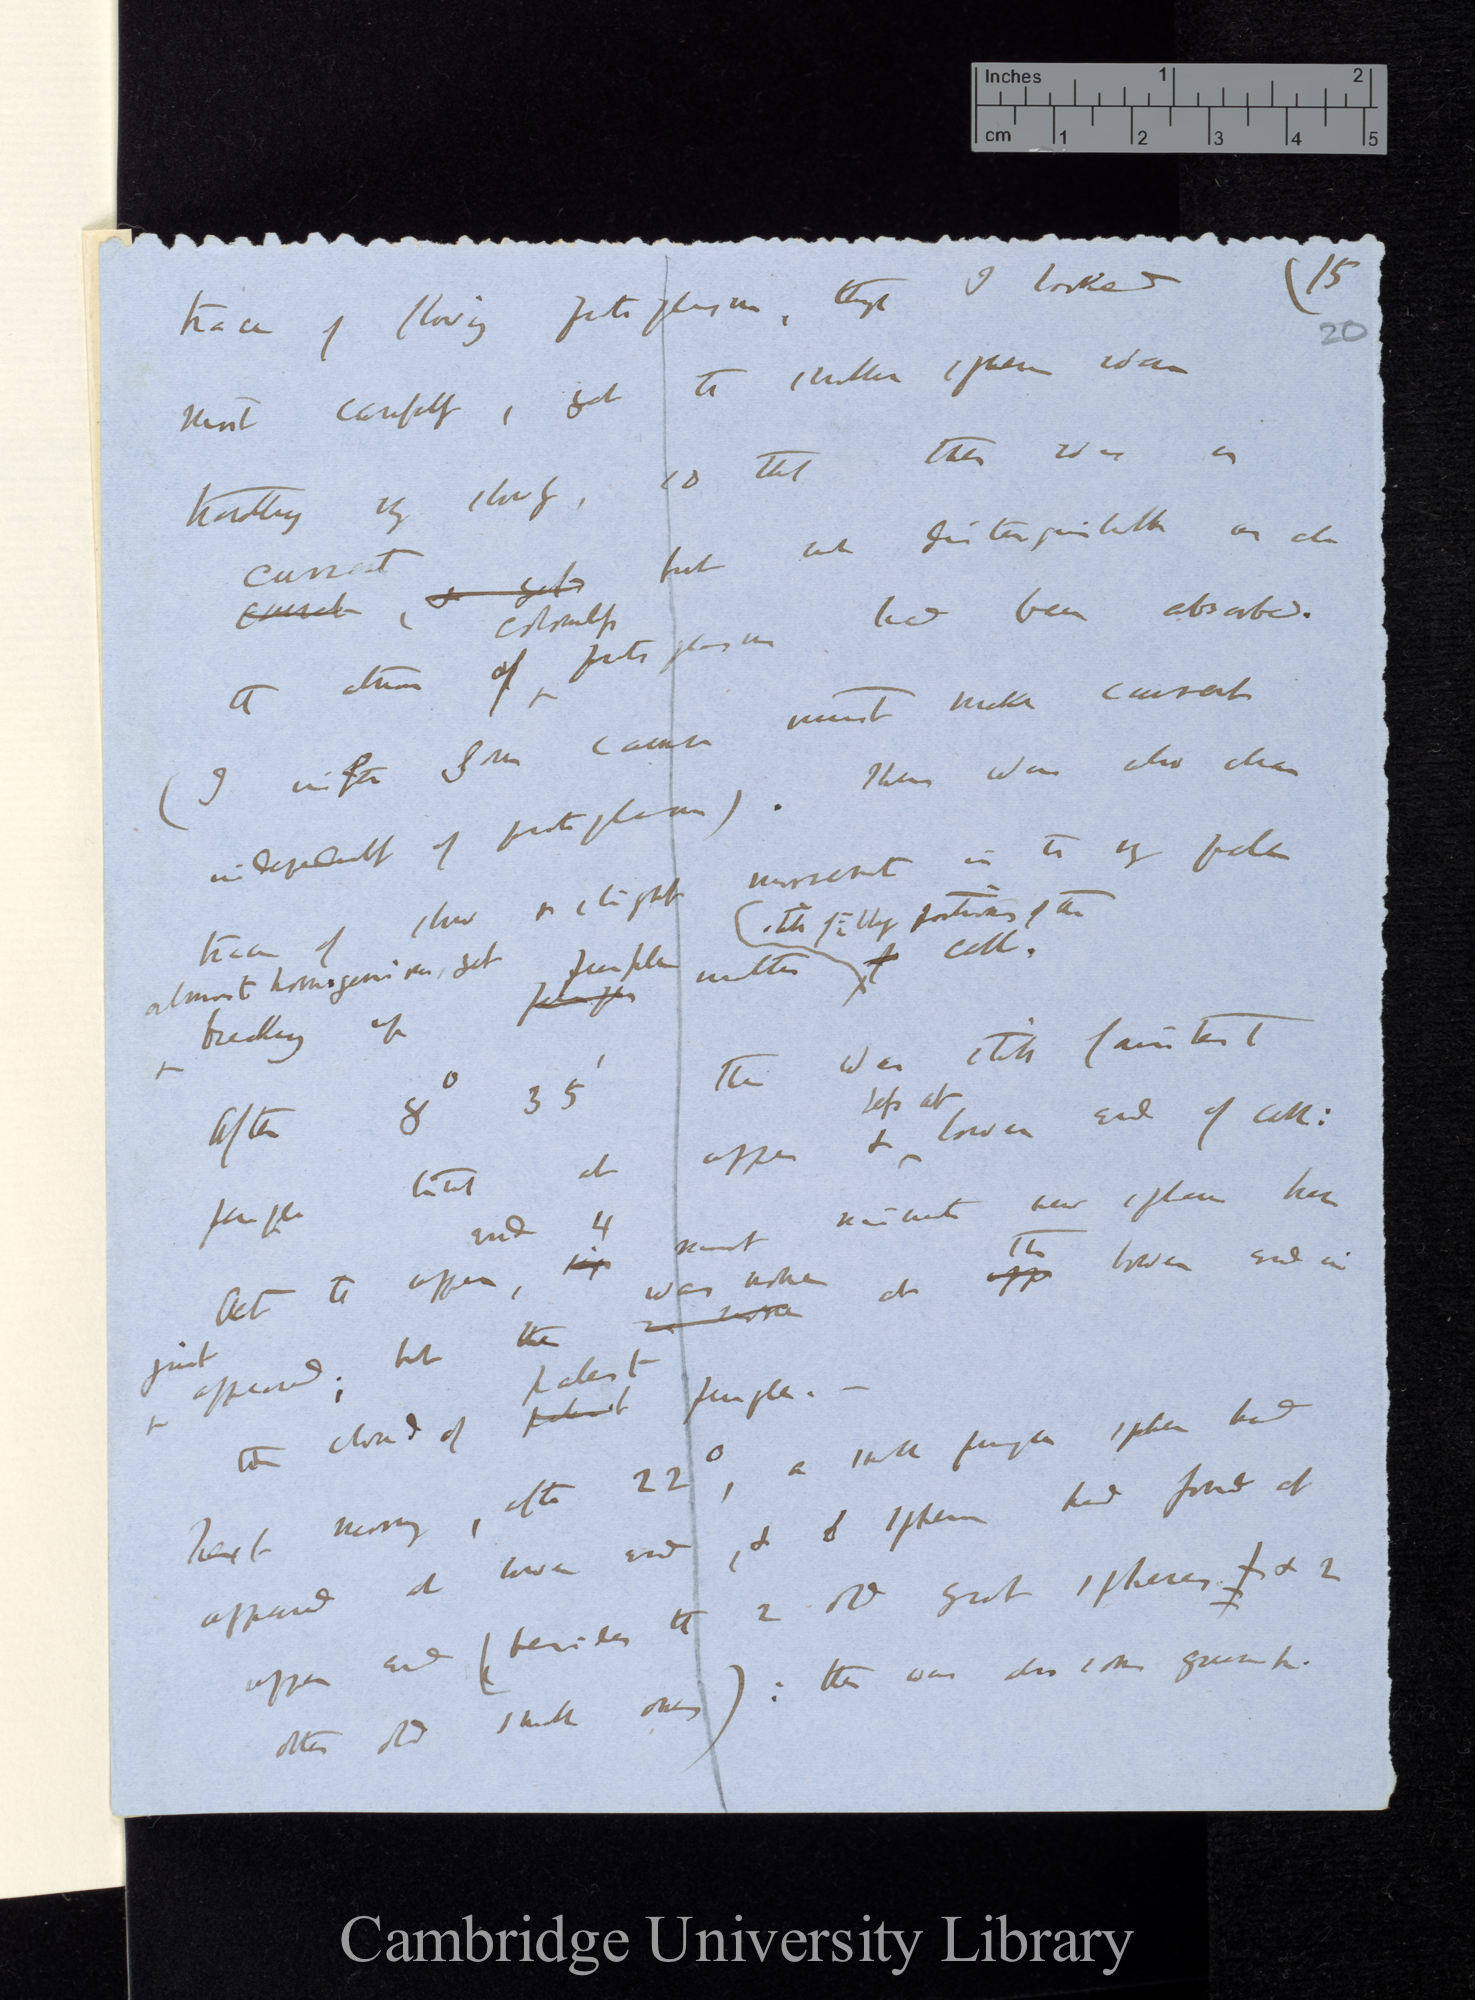 Inches 1 2
cm 1 2 3 4 5
(15
20
trace of flowing protoplasm, though I looked
most carefully, yet the smaller spheres were
travelling very slowly, so that there was a
current
current, & yet but not distinguishable as all
the stream of colourless protoplasm had been absorbed.
(I infer some cause must make currents
independently of protoplasm). There was also clear
trace of slow & slight movement in the very pale
almost homogeneous, yet purple (in the filmy portions of the
breaking up purple matter of cell.
After 8° 35' there was still faintest
purple tint at upper & less at lower end of cell:
At the upper end, 4 most minute new spheres have
just appeared; but there was none at the lower end in
the cloud of palest purple. —
Next morning, after 22°, a small purple sphere had
appeared at lower end, & 8 spheres had formed at
upper end (besides the 2 old great spheres & 2
other old small ones): there was also some
Cambridge University Library